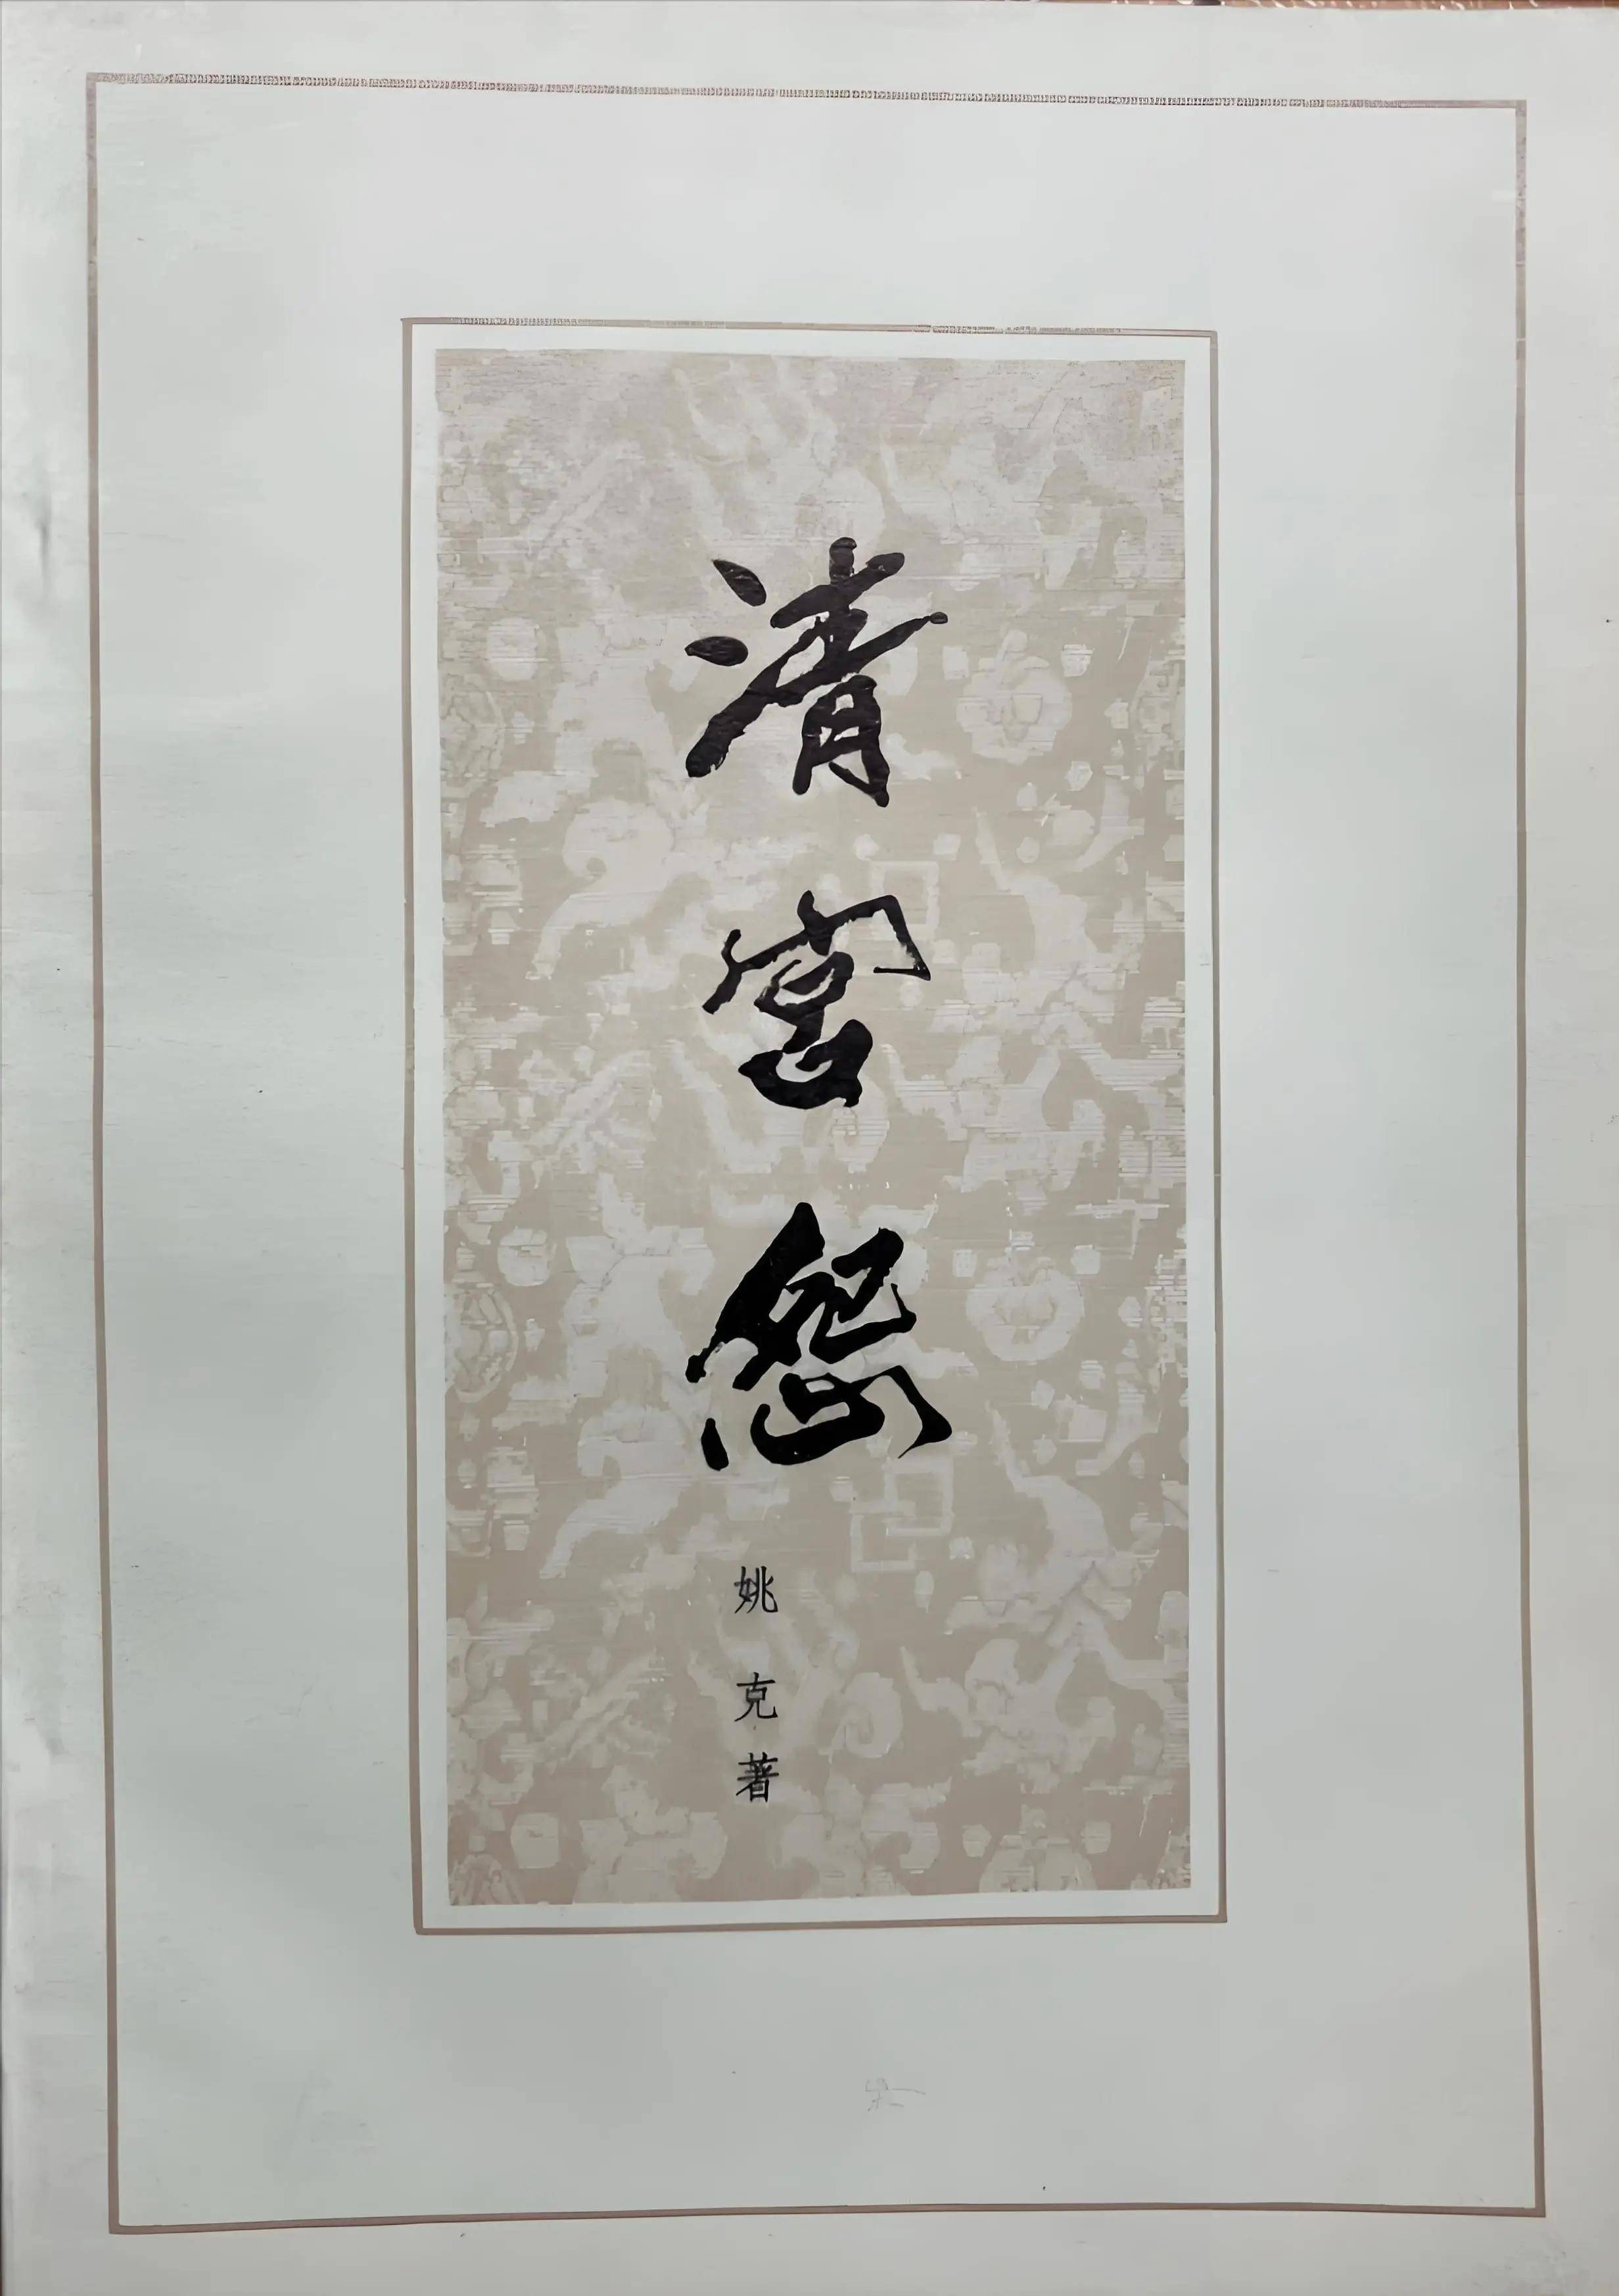 清宮怨
姚克著